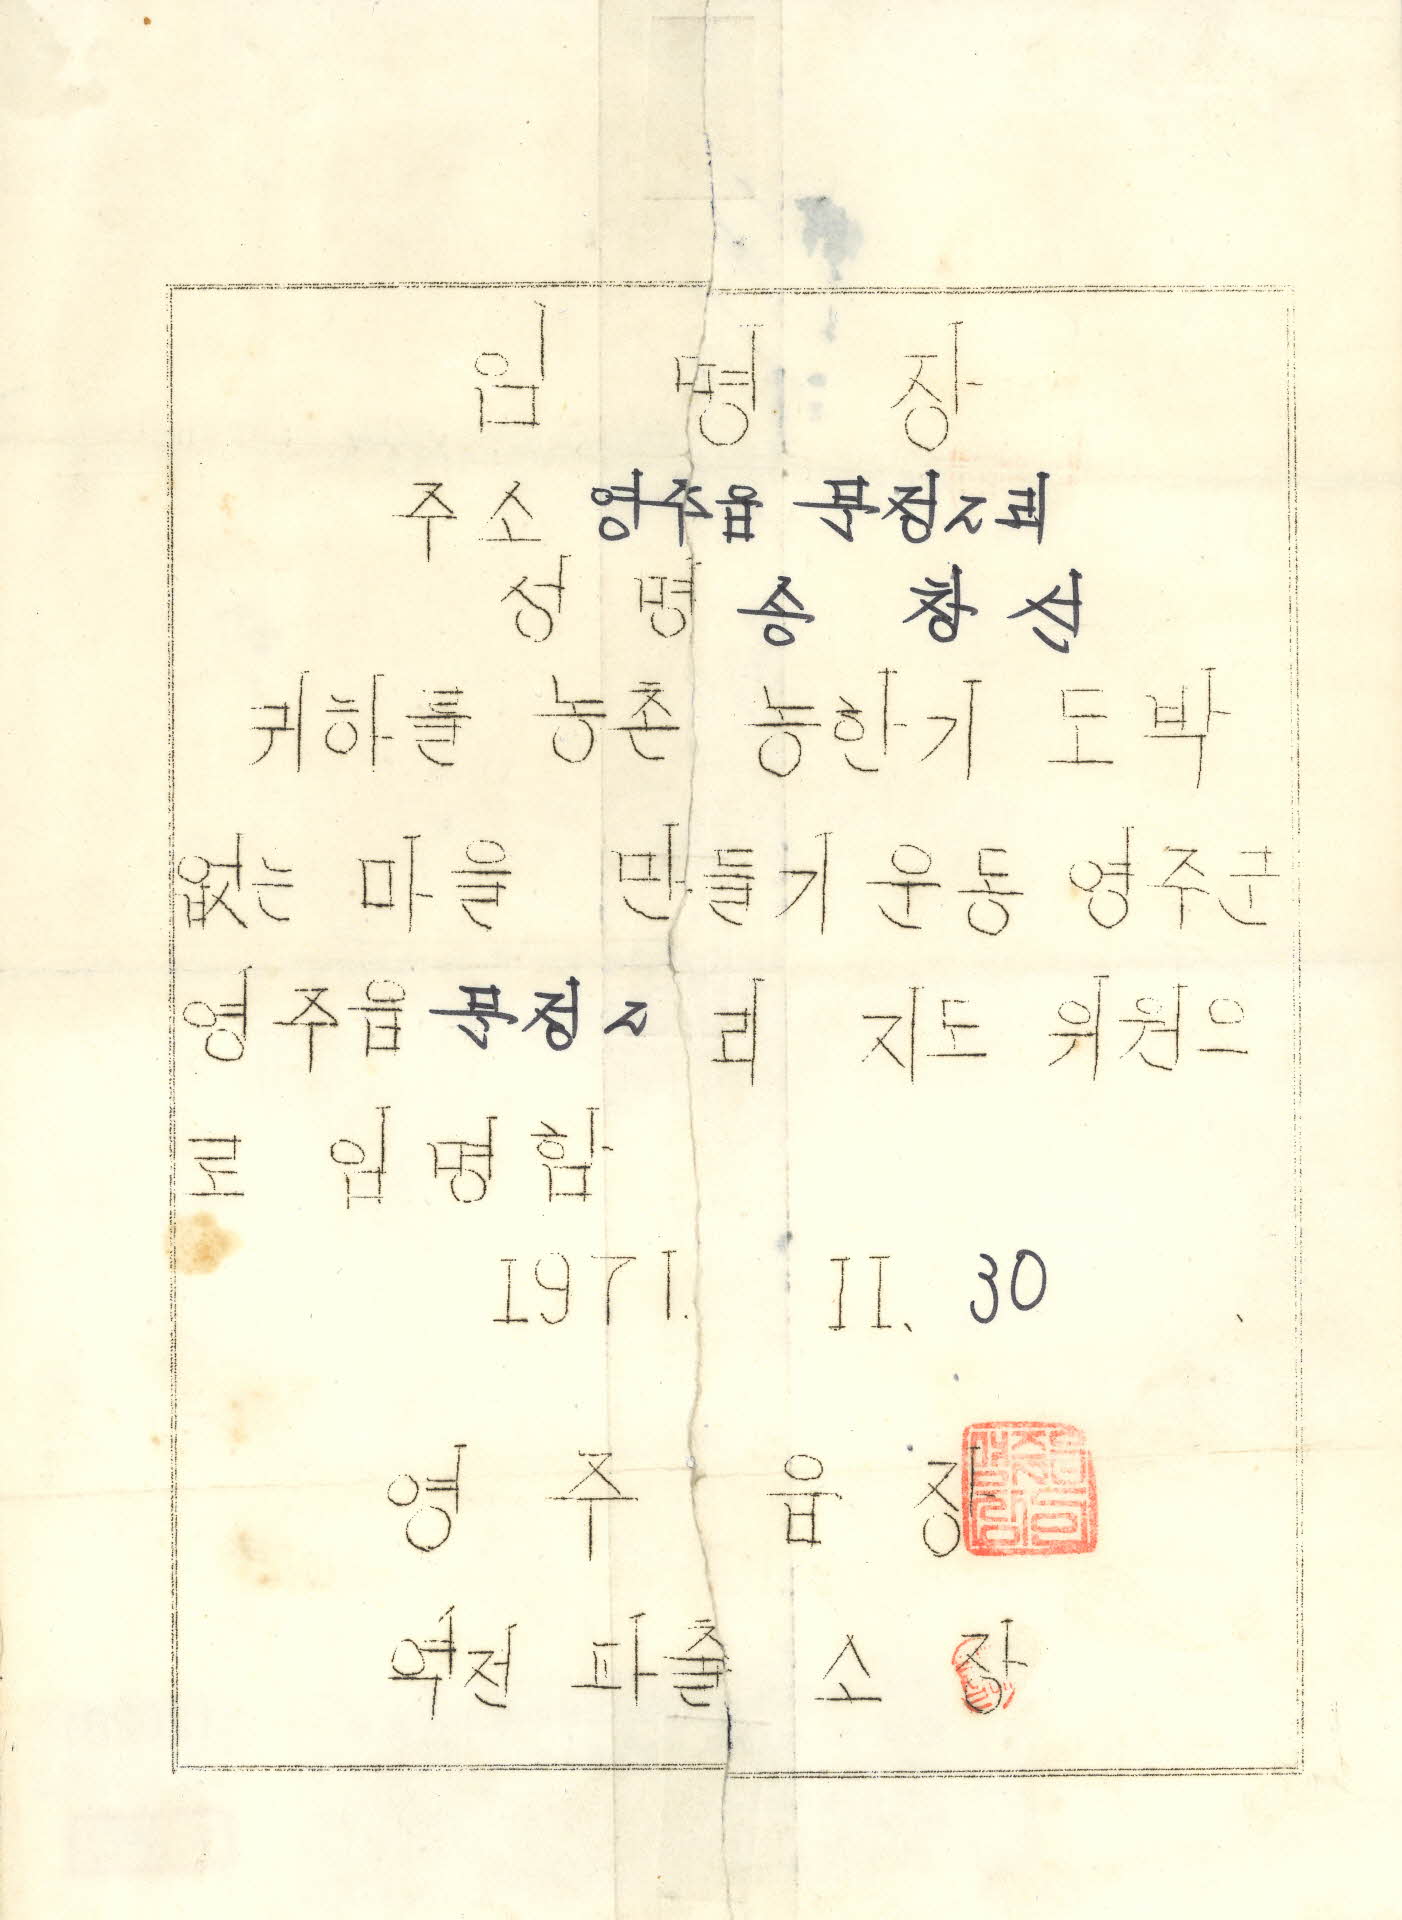 임명장
주소 영주읍 문정2리
성명 송창선
귀하를 농촌 농한기 도박
없는 마을 만들기 운동 영주군
영주읍 문정 2 리 지도 위원으
로 임명함
1971. 11. 30
영주읍장
역전 파출소장